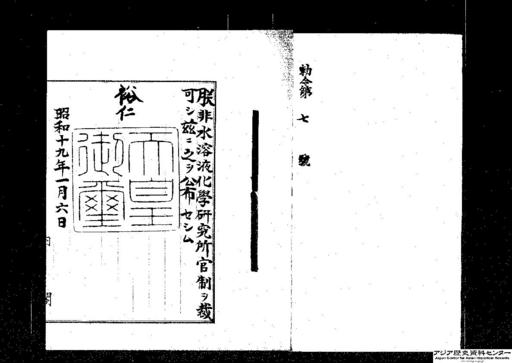 勅令第七號
朕非水溶液化學研究所官制ヲ裁
可シ茲ニ之ヲ公布セシム
裕仁
天皇御璽
昭和十九年一月六日
アジア歴史資料センター
Japan Center for Asian Historical Records